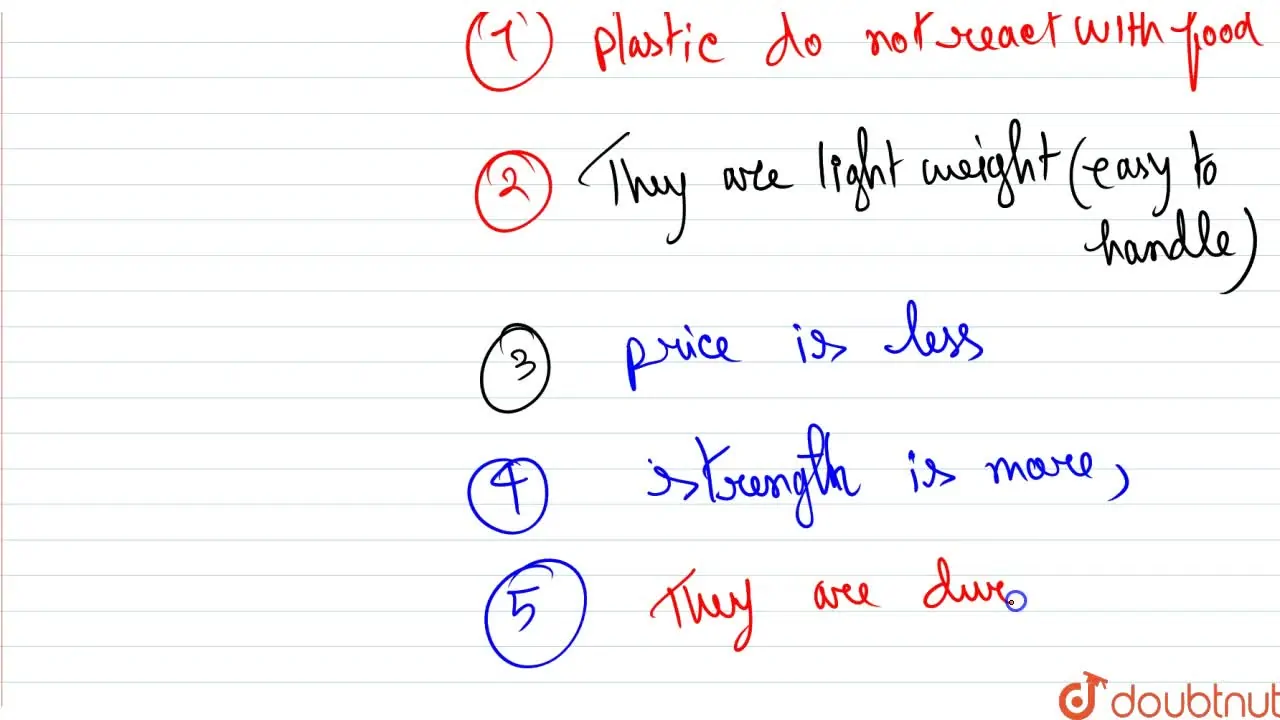 1 plastic do not react with food
2 They are light weight (easy to
handle)
3 price is less
4 strength is more,
5 They are dur
doubtnut